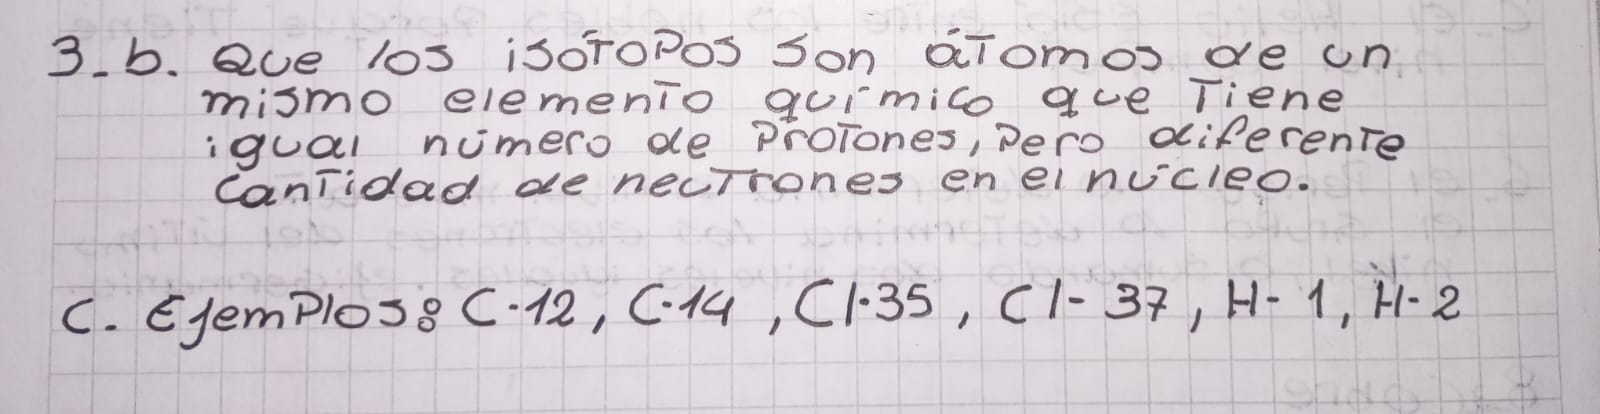 3-b. Que los isótopos son átomos de un
mismo elemento químico que tiene
igual número de protones, pero diferente
cantidad de nectrones en el núcleo.
C. Ejemplos: C-12, C-14, Cl-35, Cl-37, H-1, H-2